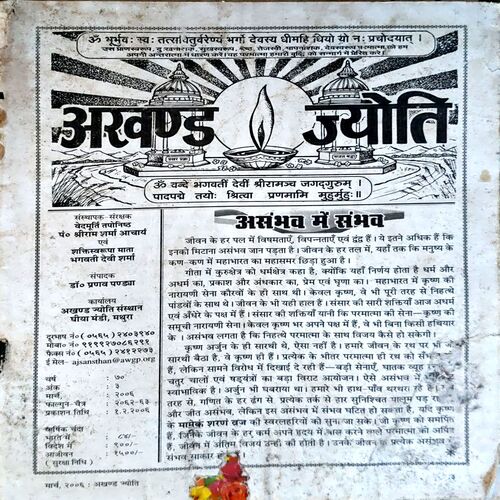 ॐ भूर्भुवः स्वः तत्सवितुर्वरेण्यं भर्गो देवस्य धीमहि धियो यो नः प्रचोदयात् ।
उस प्राणस्वरूप, दुःखनाशक, सुखस्वरूप, श्रेष्ठ, तेजस्वी, पापनाशक, देवस्वरूप परमात्मा को हम
अपनी अंतरात्मा में धारण करें। वह परमात्मा हमारी बुद्धि को सन्मार्ग में प्रेरित करे।
अखण्ड ज्योति
ॐ वन्दे भगवतीं देवीं श्रीरामञ्च जगद्गुरुम् ।
पादपद्मे तयोः श्रित्वा प्रणमामि मुहुर्मुहुः॥
संस्थापक-संरक्षक
वेदमूर्ति तपोनिष्ठ
पं० श्रीराम शर्मा आचार्य
एवं
शक्तिस्वरूपा माता
भगवती देवी शर्मा
संपादक
डॉ० प्रणव पण्ड्या
कार्यालय
अखण्ड ज्योति संस्थान
घीया मंडी, मथुरा
दूरभाष नं० (०५६५) २४०३९४०
फैक्स नं० (०५६५) २४१२२७३
ई मेल- ajsansthan@awgp.org
वर्ष : ७०
अंक : ३
मार्च : २००६
फाल्गुन-चैत्र : २०६२-६३
प्रकाशन तिथि : १.२.२००६
वार्षिक चंदा :
भारत में :
विदेश में :
आजीवन :
( सुरक्षा निधि )
असंभव में संभव
जीवन के हर पल में विषमताएँ, विपन्नताएँ एवं द्वंद्व हैं। ये इतने अधिक हैं कि
इनको मिटाना असंभव जान पड़ता है। जीवन के हर तल में, यहाँ तक कि मनुष्य के
कण-कण में महाभारत का महासमर छिड़ा हुआ है।
गीता में कुरुक्षेत्र को धर्मक्षेत्र कहा है, क्योंकि यहाँ निर्णय होता है धर्म और
अधर्म का, प्रकाश और अंधकार का, प्रेम एवं घृणा का। महाभारत में कृष्ण की
नारायणी सेना कौरवों के ही साथ थी। केवल कृष्ण, वे भी पूरी तरह से निहत्थे
पांडवों के साथ थे। जीवन के भी यही हाल हैं। संसार की सारी शक्तियाँ आज अधर्म
एवं अँधेरे के पक्ष में हैं। संसार की शक्तियाँ यानी कि परमात्मा की सेना—कृष्ण की
समूची नारायणी सेना। केवल कृष्ण भर अपने पक्ष में हैं, वे भी बिना किसी हथियार
के। असंभव लगता है कि निहत्थे परमात्मा के साथ विजय कैसे हो सकेगी।
कृष्ण अर्जुन के ही सारथी थे, ऐसा नहीं है। हमारे जीवन के रथ पर भी
सारथी बैठा है, वे कृष्ण ही हैं। प्रत्येक के भीतर परमात्मा ही रथ को सँभाल
हैं, लेकिन सामने विरोध में दिखाई दे रही हैं—बड़ी सेनाएँ, घातक व्यूह
चतुर चालों एवं षड्यंत्रों का बड़ा विराट आयोजन। ऐसे असंभव में
स्वाभाविक है। अर्जुन भी घबराया था। हमारे भी हाथ-पाँव थरथरा
तरह से, गणित के हर ढंग से प्रत्येक तर्क से हार सुनिश्चित मालूम पड़
और जीत असंभव, लेकिन इस असंभव में संभव घटित हो सकता है, यदि कृष्ण
के मामेकं शरणं व्रज को स्वरलहरियों को सुना जा सके। जो कृष्ण को समर्पित
हैं, जिनके जीवन के हर कर्म अपने हृदय में
हैं, जीवन में अंतिम विजय उन्हीं की होती है। उनके जीवन प्रत्येक असंभव
संभव साकार
मार्च, २००६ : अखण्ड ज्योति
३